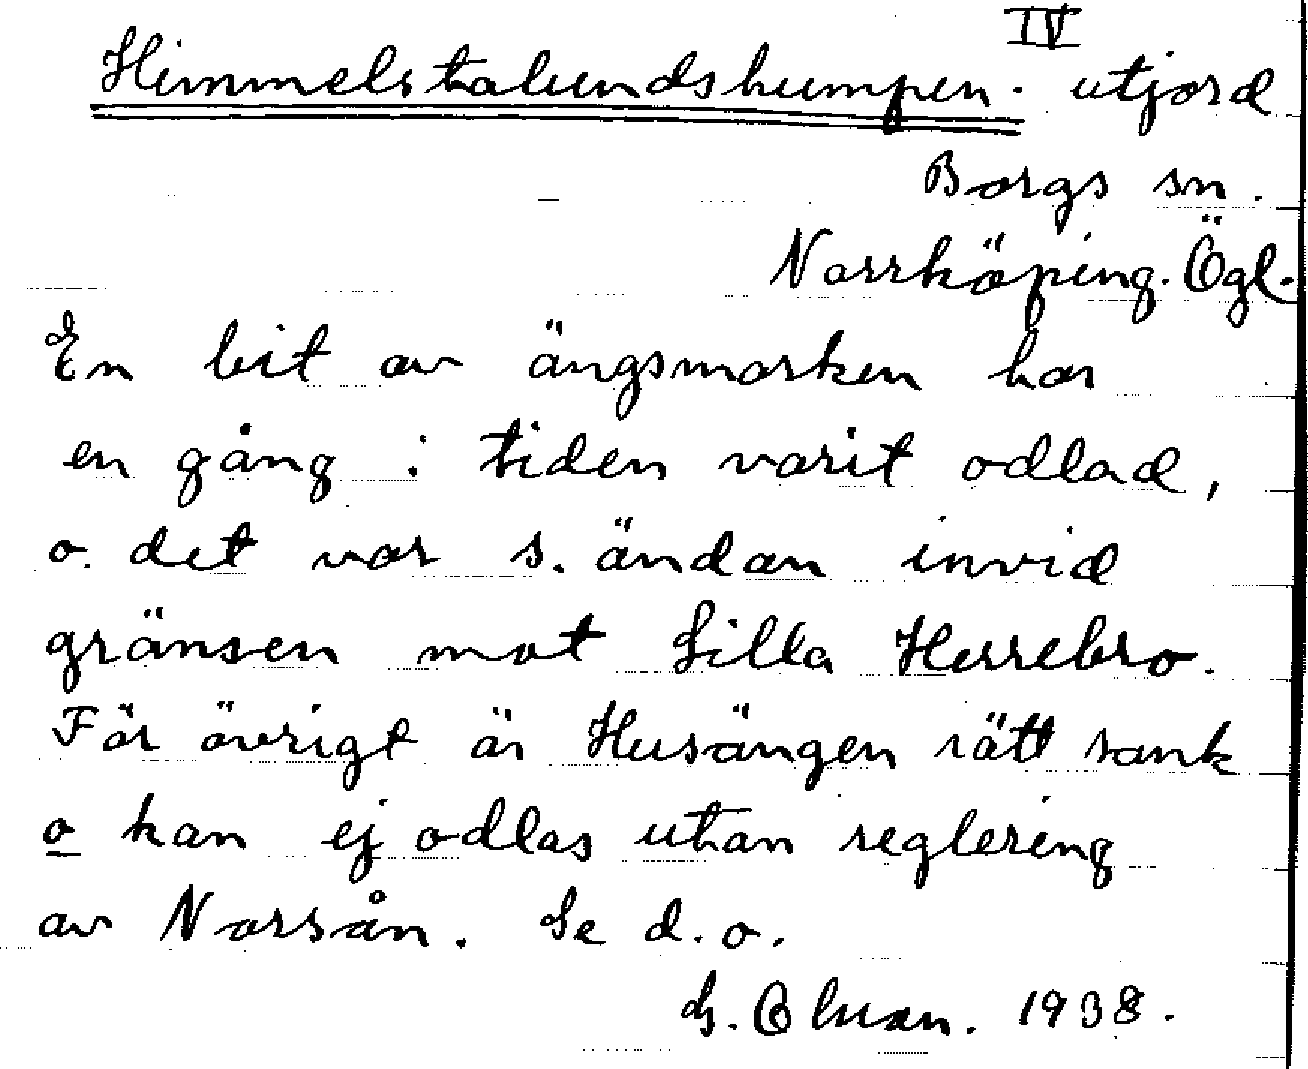 IV
Himmelstalundshumpen. utjord
Borgs sn.
Norrköping. Ögl.
En bit av ängsmarken har
en gång i tiden varit odlad,
o. det var s. ändan invid
gränsen mot Lilla Herrebro.
För övrigt är Husängen rätt sank
o kan ej odlas utan reglering
av Norsån. Se d. o.
1938.